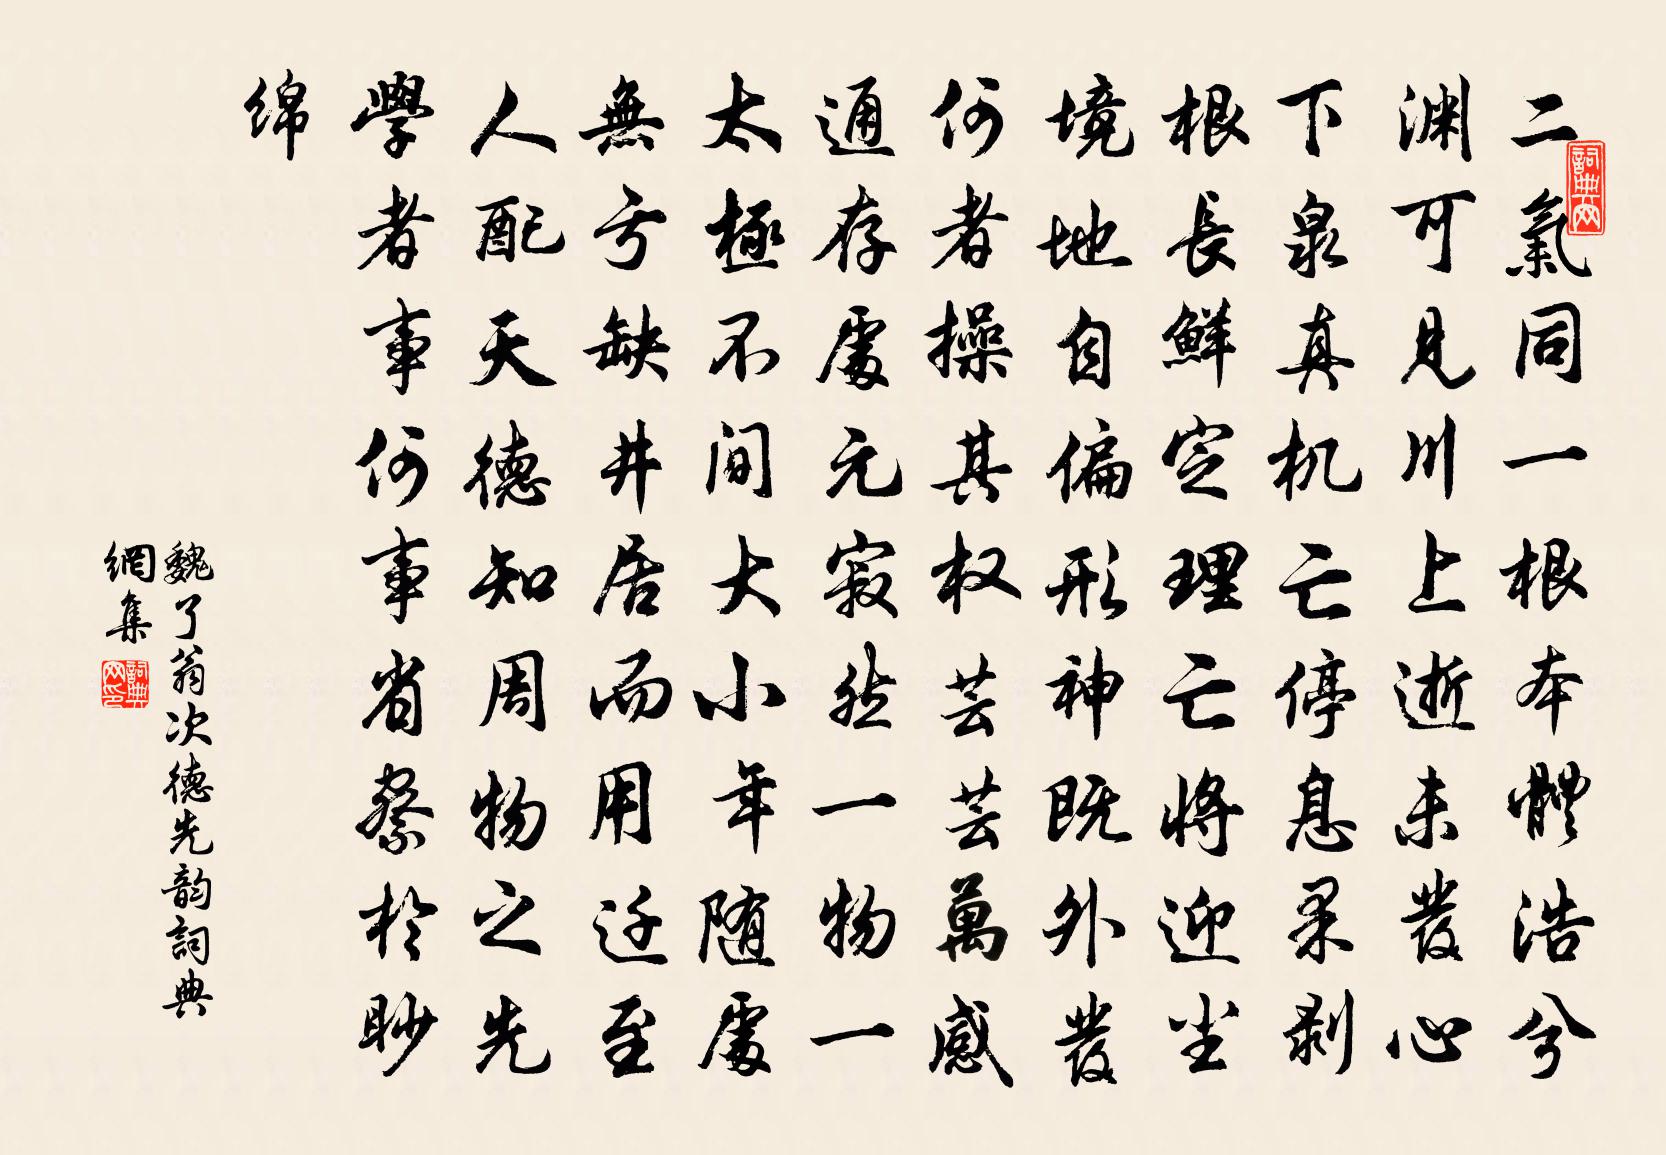 二氣同一根本體浩兮
渊可見川上逝未發心
下泉真机亡停息果剥
根長鮮定理亡將迎尘
境地自偏形神既外發
何者操其权芸芸萬感
通存處元寂然一物一
太極不间大小年随處
無亏缺井居而用迁至
人配天德知周物之先
學者事何事省察於眇
绵
魏了翁次德先韵詞典
網集
詞典网
詞典网印